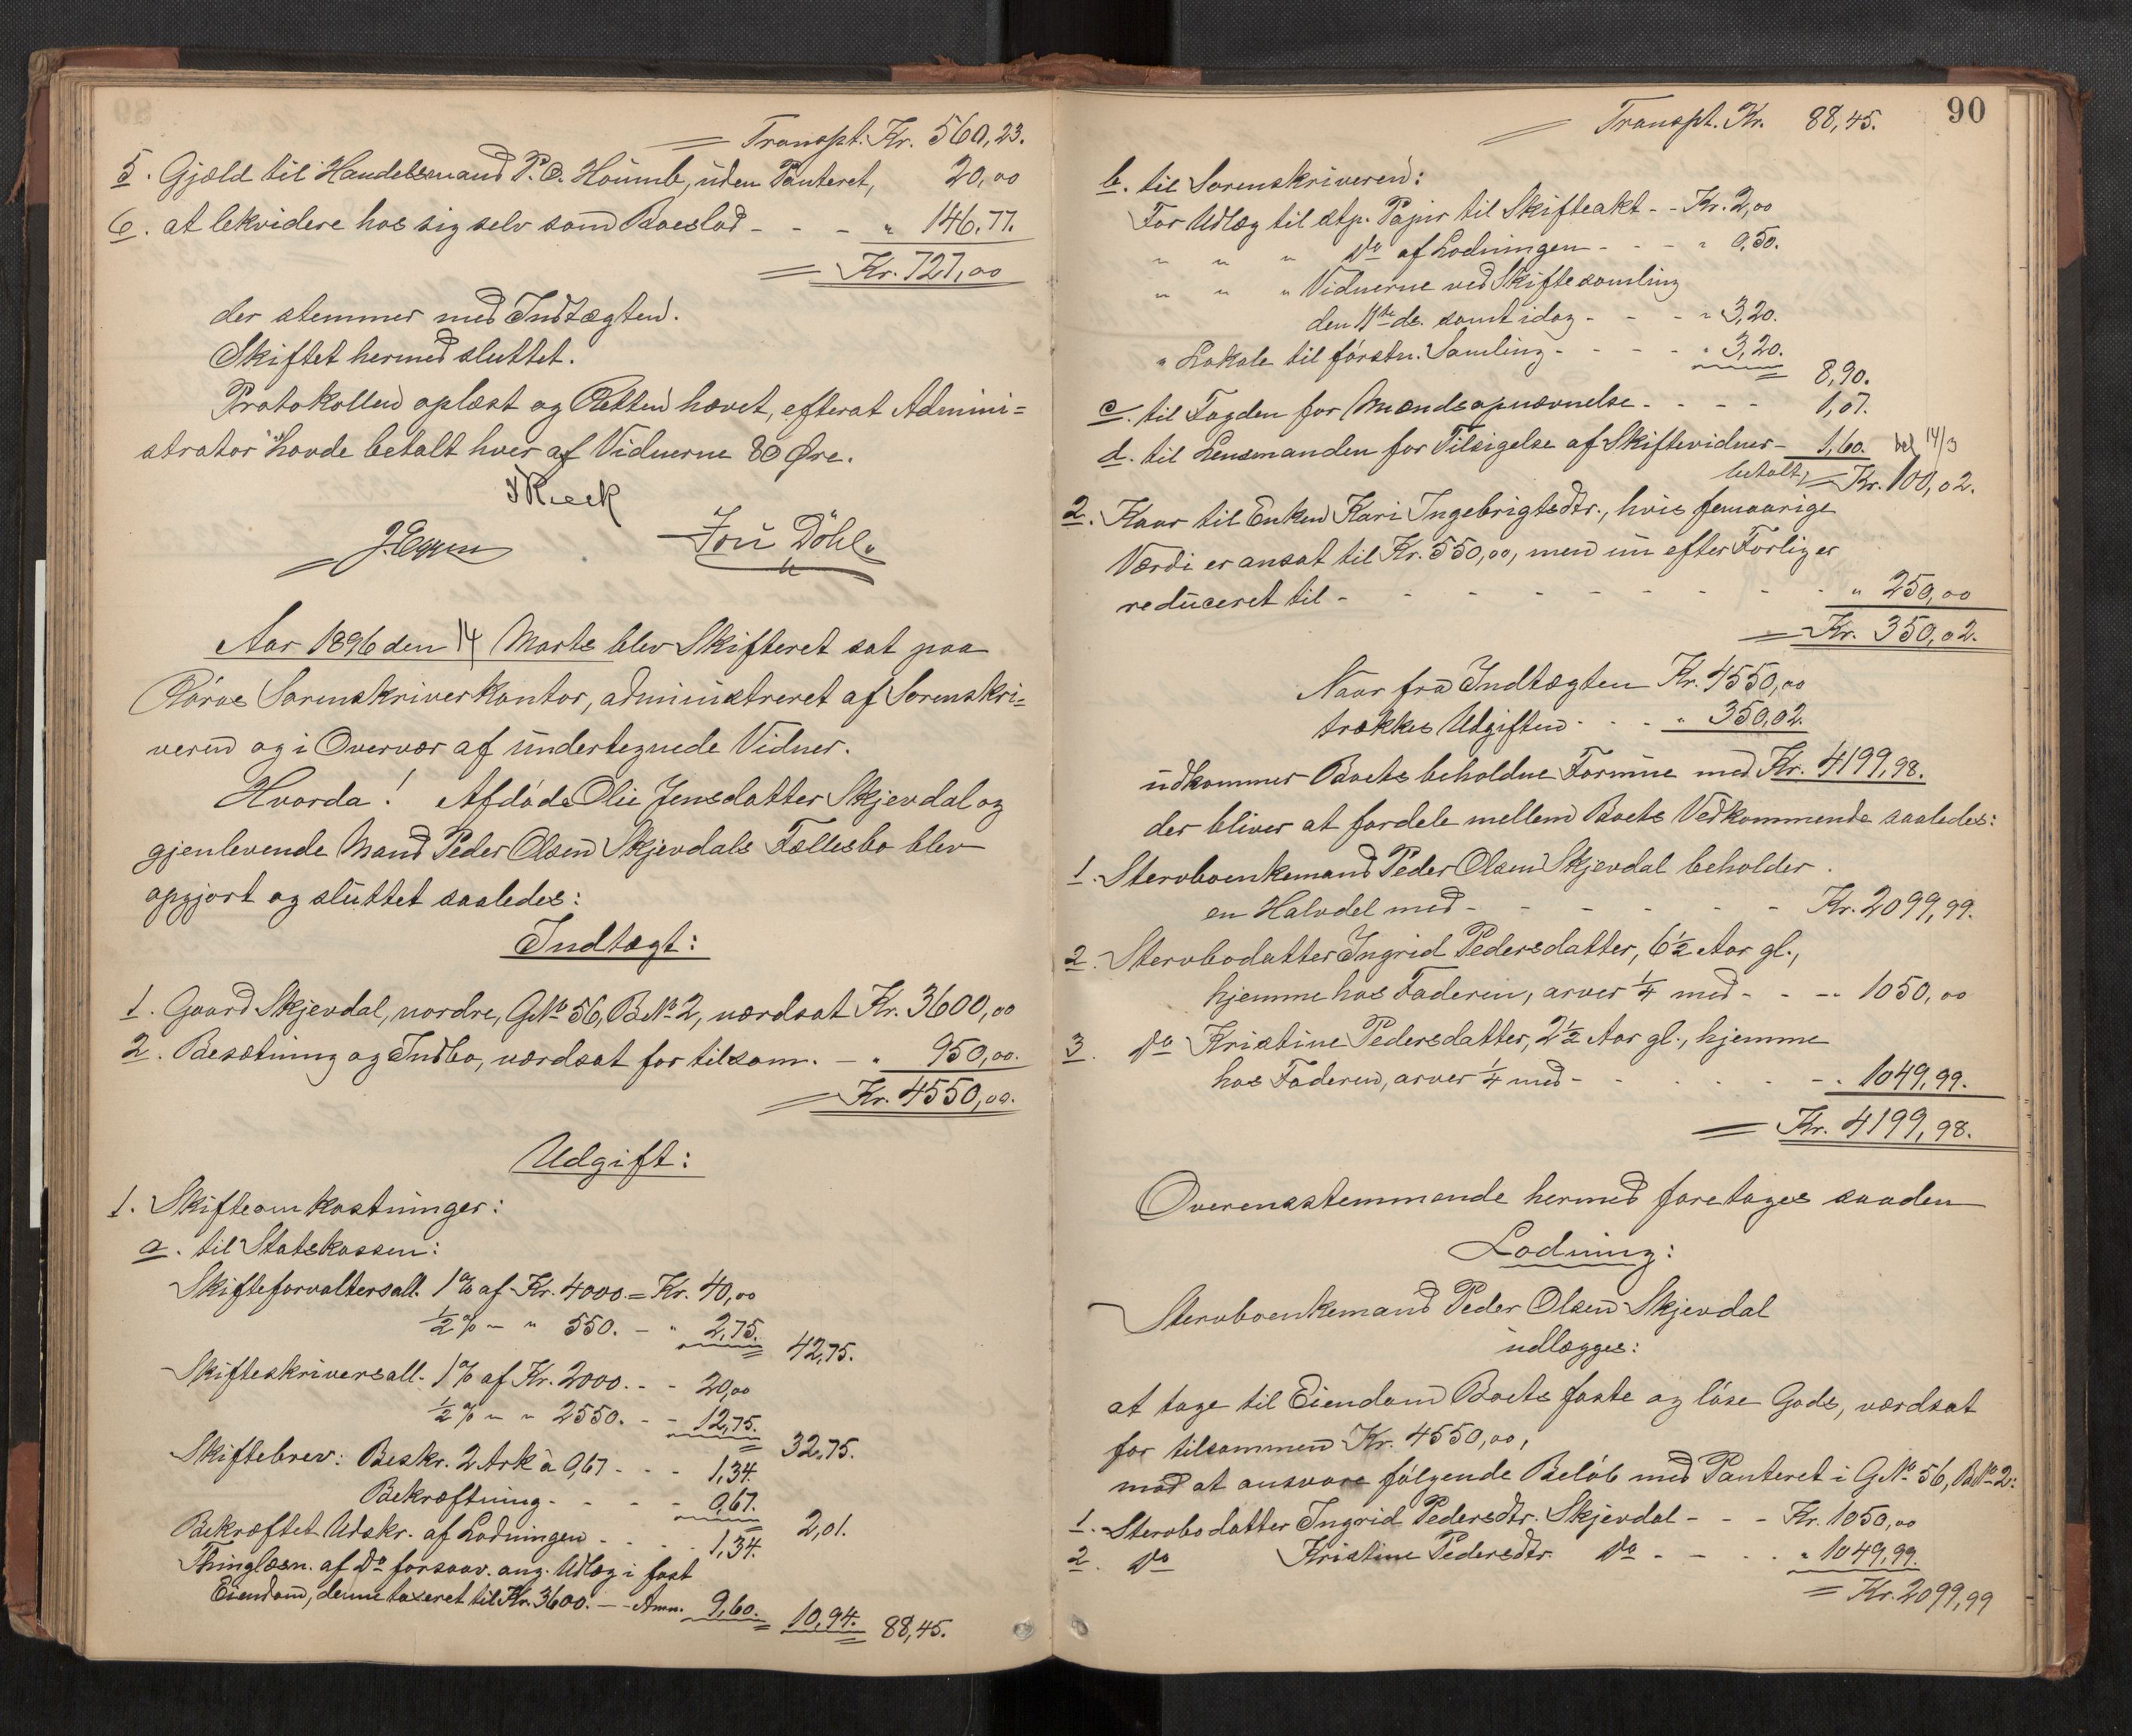 = Transpt. Kr. 560,23.
5. Gjæld til Handelsmand P. O. Houmb, uden Panteret, 20,00
6. at lekvidere hos sig selv som Boeslod - - - " 146,77.
= Kr. 727,00
der stemmer med Indtægten.
Skiftet hermed sluttet.
Protokollen oplæst og Retten hævet, efterat Admini=
strator havde betalt hver af Vidnerne 80 Øre.
J. Eggen Jon Döhl
Aar 1896 den 14 Marts blev Skifteret sat paa
Röros Sorenskriverkontor, administreret af Sorenskri=
veren og i Overvær af undertegnede Vidner.
Hvorda! Afdöde Olie Jensdatter Skjevdal og
gjenlevende Mand Peder Olsen Skjevdals Fællesbo blev
opgjort og sluttet saaledes:
Indtægt:
1. Gaard Skjevdal, nordre, G.No 56, B.No 2, værdsat Kr. 3600,00
2. Besætning og Indbo, værdsat for tilsam. - " 950,00.
= Kr. 4550,00.
Udgift:
1. Skifteomkostninger:
a. til Statskassen:
Skifteforvaltersall. 1% af Kr. 4000. = Kr. 40,00
½% - " 550. - " 2,75. 42,75.
Skifteskriversall. 1% af Kr. 2000. - - 20,00
½% " " 2550. - - 12,75. 32,75.
Skiftebrev: Beskr. 2 Ark à 0,67 - - - 1,34.
Bekræftning - - - - 0,67. 2,01.
Bekræftet Udskr. af Lodningen - - - 1,34.
Thinglæsn. af Do forsaav. ang. Udlæg i fast
Eiendom, denne taxeret til Kr. 3600. - - Anm. 9,60. 10,94. 88,45.
90
= Transpt. Kr. 88,45.
b. til Sorenskriveren:
For Udlæg til stp. Papir til Skifteakt - - Kr. 2,00
" " " Do af Lodningen - - - " 0,50.
" " " Vidnerne ved Skiftesamling
den 11te ds. samt idag - - - " 3,20.
" Lokale til förstn. Samling - - - - " 3,20. 8,90.
c. til Fogden for Mændsopnævnelse - - - - 1,07.
d. til Lensmanden for Tilsigelse af Skiftevidner - 1,60. 14/3
betalt, = Kr. 100,02.
2. Kaar til Enken Kari Ingebrigtsdtr., hvis femaarige
Værdi er ansat til Kr. 550,00, men nu efter Forlig er
reduceret til - - - - - - - - - " 250,00
= Kr. 350,02.
Naar fra Indtægten Kr. 4550,00
trækkes Udgiften - - - " 350,02.
udkommer Boets beholdne Formue med Kr. 4199,98.
der bliver at fordele mellem Boets Vedkommende saaledes:
1. Stervboenkemand Peder Olsen Skjevdal beholder
en Halvdel med - - - - - - - Kr. 2099,99.
2. Stervbodatter Ingrid Pedersdatter, 6½ Aar gl.,
hjemme hos Faderen, arver ¼ med - - - " 1050,00
3. Do Kristine Pedersdatter, 2½ Aar gl., hjemme
hos Faderen, arver ¼ med - - - - - " 1049,99.
= Kr. 4199,98.
Overensstemmende hermed foretages saaden
Lodning:
Stervboenkemand Peder Olsen Skjevdal
udlægges:
at tage til Eiendom Boets faste og löse Gods, værdsat
for tilsammen Kr. 4550,00,
mod at ansvare fölgende Belöb med Panteret i G.No 56, B.No 2:
1. Stervbodatter Ingrid Pedersdtr. Skjevdal - - - Kr. 1050,00
2. Do Kristine Pedersdtr. Do - - - - " 1049,99.
= Kr. 2099,99